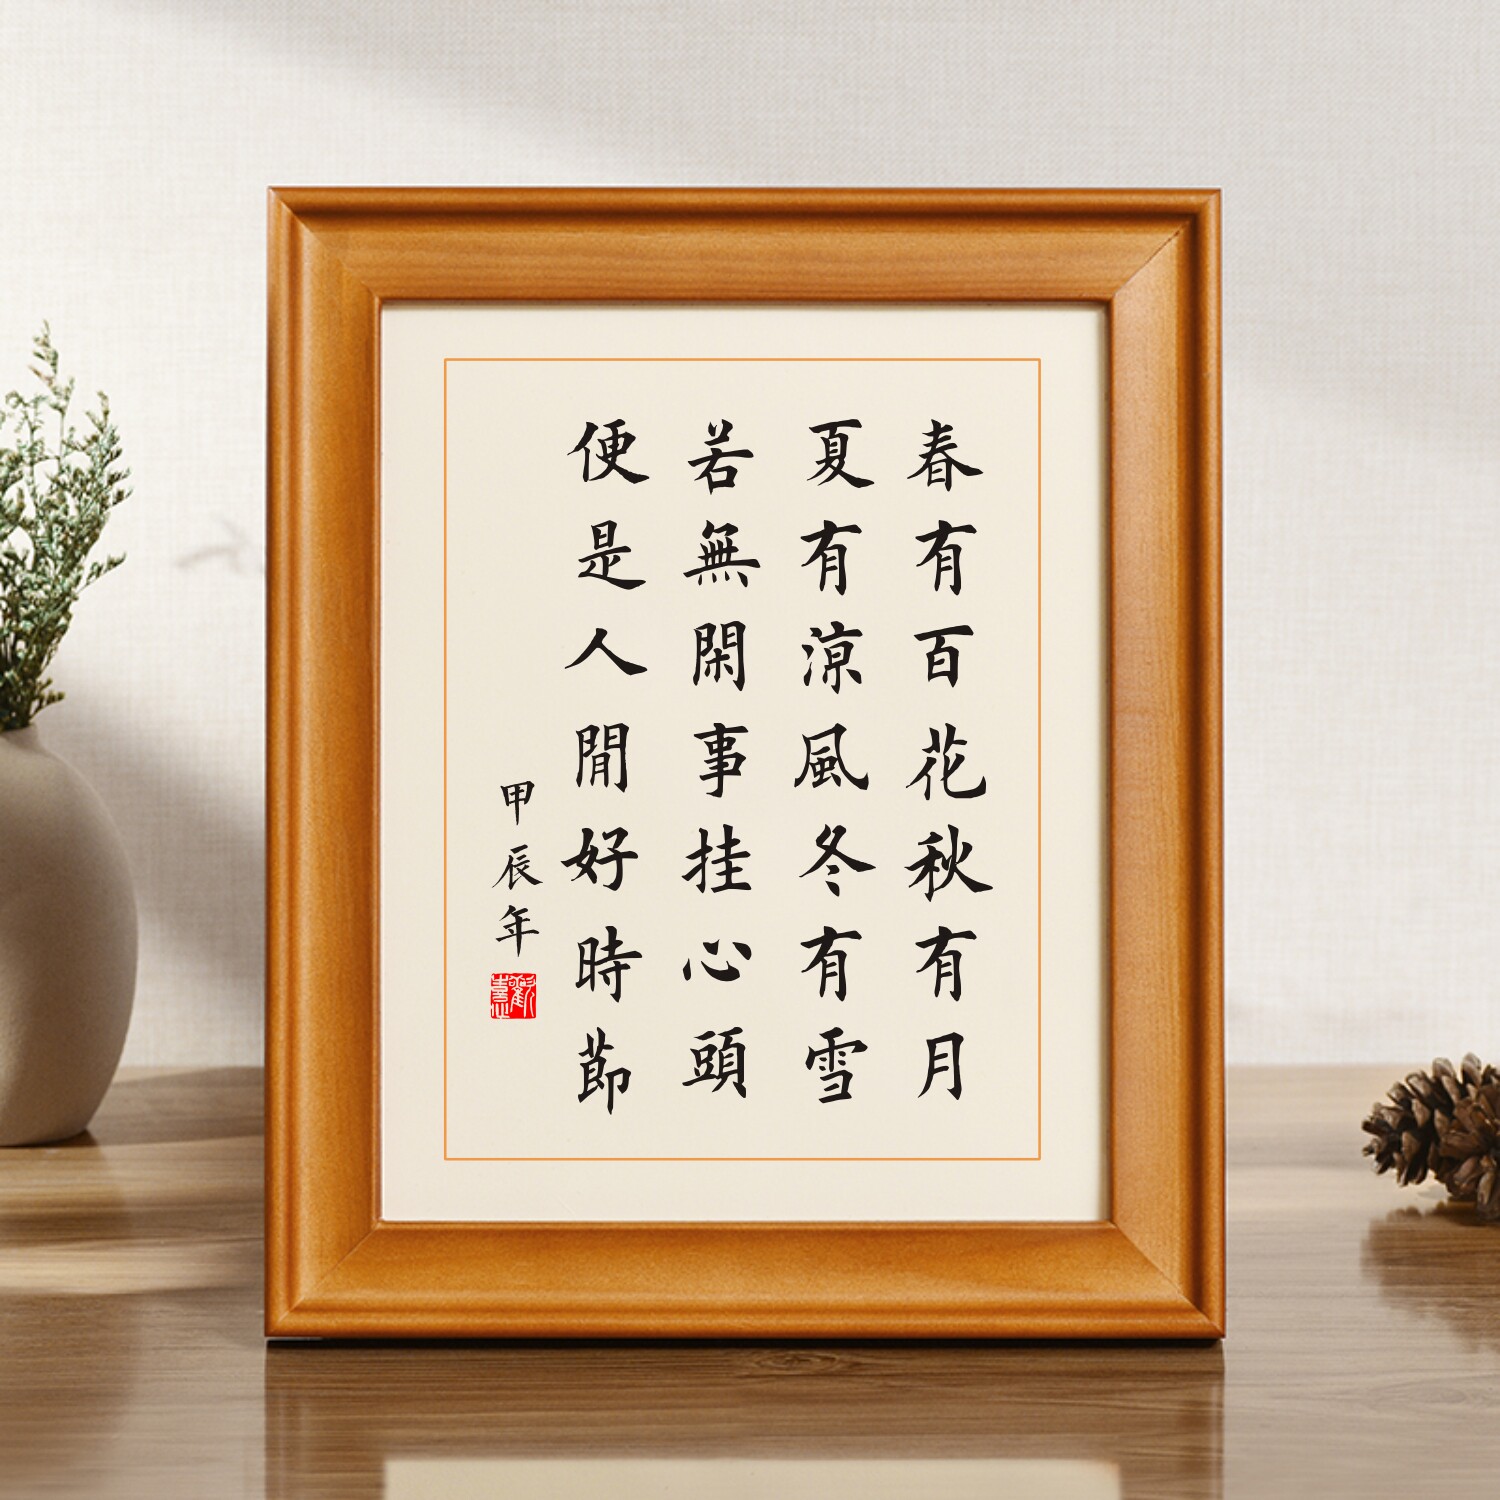 春有百花秋有月
夏有涼風冬有雪
若無閑事挂心頭
便是人間好時節
甲辰年
歡喜